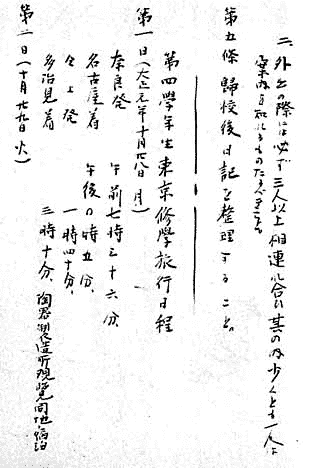 二、外出の際は必ず三人以上相連れ合ひ其の内少くとも一人は
案内を知れるものたるべきこと
第五條 歸校後日記を整理すること。
第四學年生東京修學旅行日程
第一日(大正元年十月廿八日 月)
奈良発 午前七時三十六分、
名古屋着 午後〇時五分、
仝上発 一時四十分、
多治見着 三時十分、陶器製造所観覧同地一泊
第二日(十月廿九日 火)